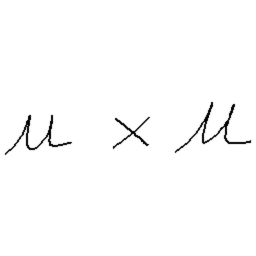 u × u